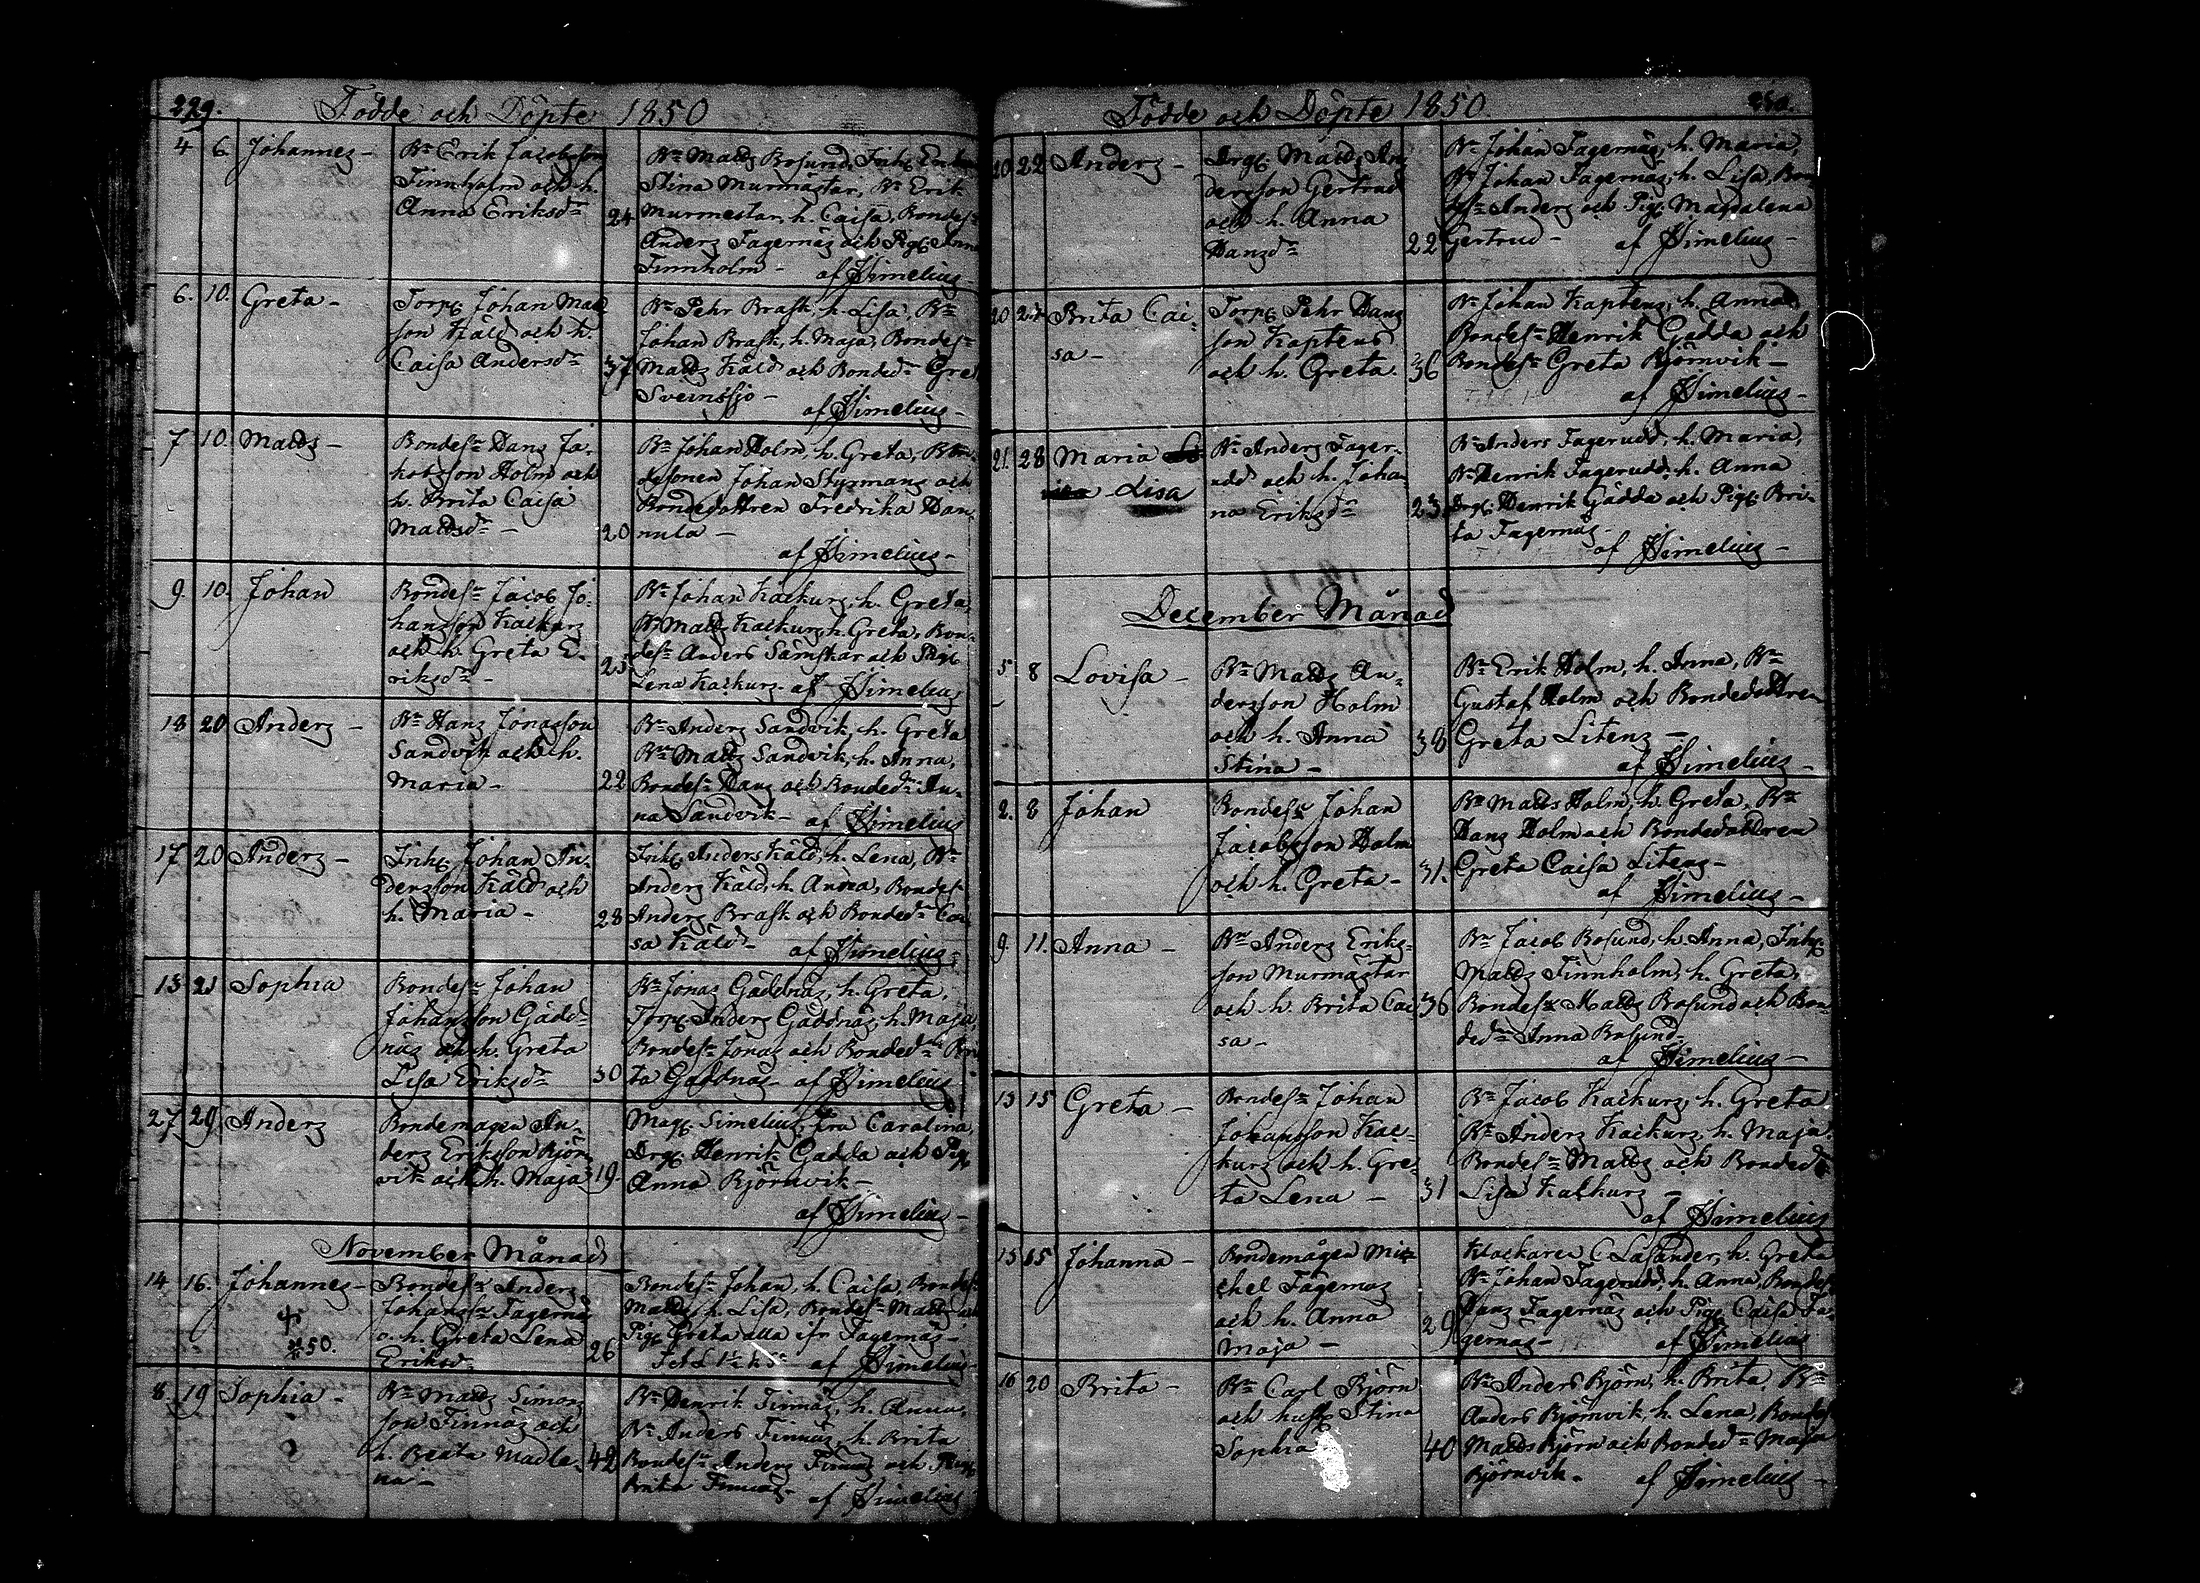 229.
Födde och Döpte 1850
4 6. Johannes - Bn Erik Jacobsson
Finnholm och h.
Anna Eriksdr
24
Bn Matts Bosund, Inhs
Stina Murmästar, Bn Erik
Murmestar, h. Caisa, Bondesn
Anders Fagernäs och Pig. Anna
Finnholm - af Simelius
6. 10. Greta - Torp. Johan Mats
son Käld och h.
Caisa Andersdr
37
Bn Pehr Brask, h. Lisa, Bn
Johan Brask, h. Maja, Bondesn
Matts Käld och Bondedr Greta
Sveinssjö - af Simelius -
7 10. Matts - Bondesn Hans Ja-
kobsson Holm och
h. Brita Caisa
Mattsdr -
20
Bn Johan Holm, h. Greta, Bon-
desonen Johan Styrmans och
Bondedottren Fredrika Han-
nula -
af Simelius -
9. 10. Johan Bondesn Jacob Jo-
hansson Kackurs
och h. Greta E-
riksdr -
25
Bn Johan Kackurs, h. Greta,
Bn Matts Kackurs, h. Greta, Bon-
desn Anders Sämskar och Pig.
Lena Kackurs - af Simelius
18 20 Anders - Bn Hans Jonasson
Sandvik och h.
Maria -
22
Bn Anders Sandvik, h. Greta
Bn Matts Sandvik, h. Anna,
Bondesn Hans och Bondedr An-
na Sandvik - af Simelius
17 20 Anders - Inhs. Johan An-
dersson Käld och
h. Maria -
28
Inhs. Anders Käld, h. Lena, Bn
Anders Käld, h. Anna, Bondesn
Anders Brask och Bondedr Cai
sa Käld - af Simelius -
13 21 Sophia Bondesn Johan
Johansson Gädd-
näs och h. Greta
Lisa Eriksdr
30
Bn Jonas Gäddnäs, h. Greta,
Torp. Anders Gäddnäs, h. Maja,
Bondesn Jonas och Bondedr Bri
ta Gäddnäs - af Simelius
27 29 Anders Bondemagen An-
ders Eriksson Björn
vik och h. Maja
19.
Mag. Simelius, fru Carolina,
Drg. Henrik Gädda och Pig.
Anna Björnvik -
af Simelius -
November Månad
14 16. Johannes - Bondesn Anders
Johanssn Fagernäs
o. h. Greta Lena
Eriksdr
50.
26
Bondesn Johan, h. Caisa, Bondesn
Matts, h. Lisa, Bondesn Matts och
Pig. Greta alla ifr Fagernäs -
af Simelius
8. 19 Sophia - Bn Matts Simons
son Finnäs och
h. Beata Madle-
na -
42
Bn Henrik Finnäs, h. Anna,
Bn Anders Finnäs, h. Brita
Bondesn Anders Finnäs och Pig.
Brita Finnäs - af Simelius
Födde och Döpte 1850.
20 22 Anders - Drg. Matts An
dersson Gertrud
och h. Anna
Hansdr
22
Bn Johan Fagernäs, h. Maria,
Bn Johan Fagernäs, h. Lisa, Bon
desn Anders och Pig. Magdalena
Gertrud - af Simelius -
20 Brita Cai-
sa -
Torp. Pehr Hans
son Kaptens
och h. Greta.
36
Bn Johan Kaptens, h. Anna,
Bondesn Henrik Gädda och
Bondesn Greta Björnvik -
af Simelius -
21. 28 Maria
Lisa
Bn Anders Fager-
udd och h. Joha-
na Eriksdr
23.
Bn Anders Fagerudd, h. Maria,
Bn Henrik Fagerudd, h. Anna
Drg. Henrik Gädda och Pig. Bri-
ta Fagernäs -
af Simelius -
December Månad
5 8 Lovisa - Bn Matts An-
dersson Holm
och h. Anna
Stina -
38
Bn Erik Holm, h. Anna, Bn
Gustaf Holm och Bondedottren
Greta Litens -
af Simelius -
2. 8 Johan Bondesn Johan
Jacobsson Holm
och h. Greta -
31.
Bn Matts Holm, h. Greta, Bn
Hans Holm och Bondedottren
Greta Caisa Litens -
af Simelius -
9. 11. Anna - Bn Anders Eriks-
son Murmästar
och h. Brita Cai
sa -
36
Bn Jacob Bosund, h. Anna, Inhs.
Matts Finnholm, h. Greta,
Bondesn Matts Bosund och Bon-
dedr Anna Bosund -
af Simelius -
13 15 Greta - Bondesn Johan
Johansson Kac-
kurs och h. Gre-
ta Lena -
31
Bn Jacob Kackurs, h. Greta
Bn Anders Kackurs, h. Maja.
Bondesn Matts och Bondedr
Lisa Kackurs -
af Simelius
13 15 Johanna - Bondemågen Mic
chel Fagernäs
och h. Anna
Maja -
29
Klockaren C. Lasander, h. Greta
Bn Johan Fagerudd, h. Anna, Bondesn
Hans Fagernäs och Pig. Caisa Fa-
gernäs - af Simelius
16 20 Brita - Bn Carl Björn
och hust. Stina
Sophia
40
Bn Anders Björn, h. Brita, Bn
Anders Björnvik, h. Lena, Bondesn
Matts Björn och Bondedr Maja
Björnvik. af Simelius -